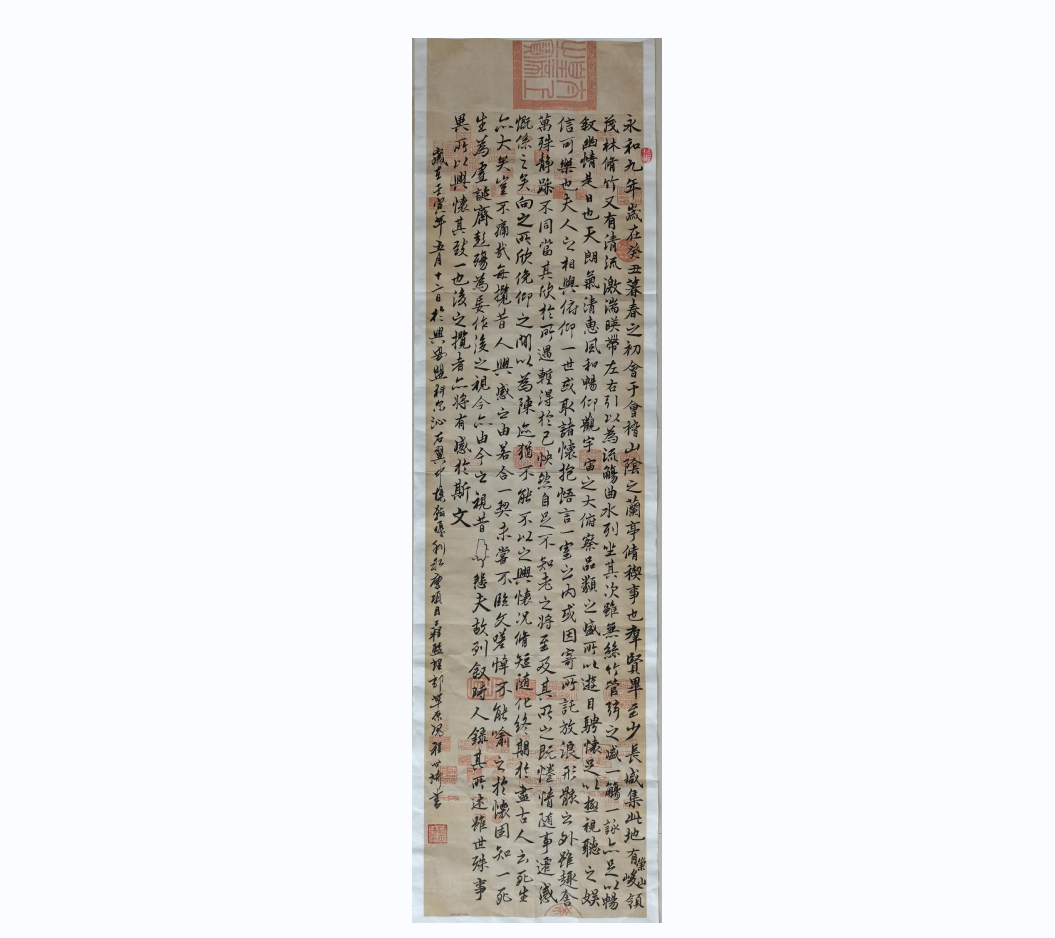 永和九年歲在癸丑暮春之初會于會稽山陰之蘭亭脩稧事也羣賢畢至少長咸集此地有崇山峻領
茂林脩竹又有清流激湍暎帶左右引以為流觴曲水列坐其次雖無絲竹管弦之盛一觴一詠亦足以暢
叙幽情是日也天朗氣清惠風和暢仰觀宇宙之大俯察品類之盛所以遊目騁懷足以極視聽之娛
信可樂也夫人之相與俯仰一世或取諸懷抱悟言一室之內或因寄所託放浪形骸之外雖趣舍
萬殊静躁不同當其欣於所遇輕得於己快然自足不知老之將至及其所之既惓情隨事遷感
慨係之矣向之所欣俛仰之間以為陳迹猶不能不以之興懷況脩短隨化終期於盡古人云死生
亦大矣豈不痛哉每攬昔人興感之由若合一契未嘗不臨文嗟悼不能喻之於懷固知一死
生為虛誕齊彭殤為妄作後之視今亦由今之視昔悲夫故列叙時人錄其所述雖世殊事
異所以興懷其致一也後之攬者亦將有感於斯文
歲在壬寅年五月十二日於興安盟科尔沁右翼中項目工程監理部草原書